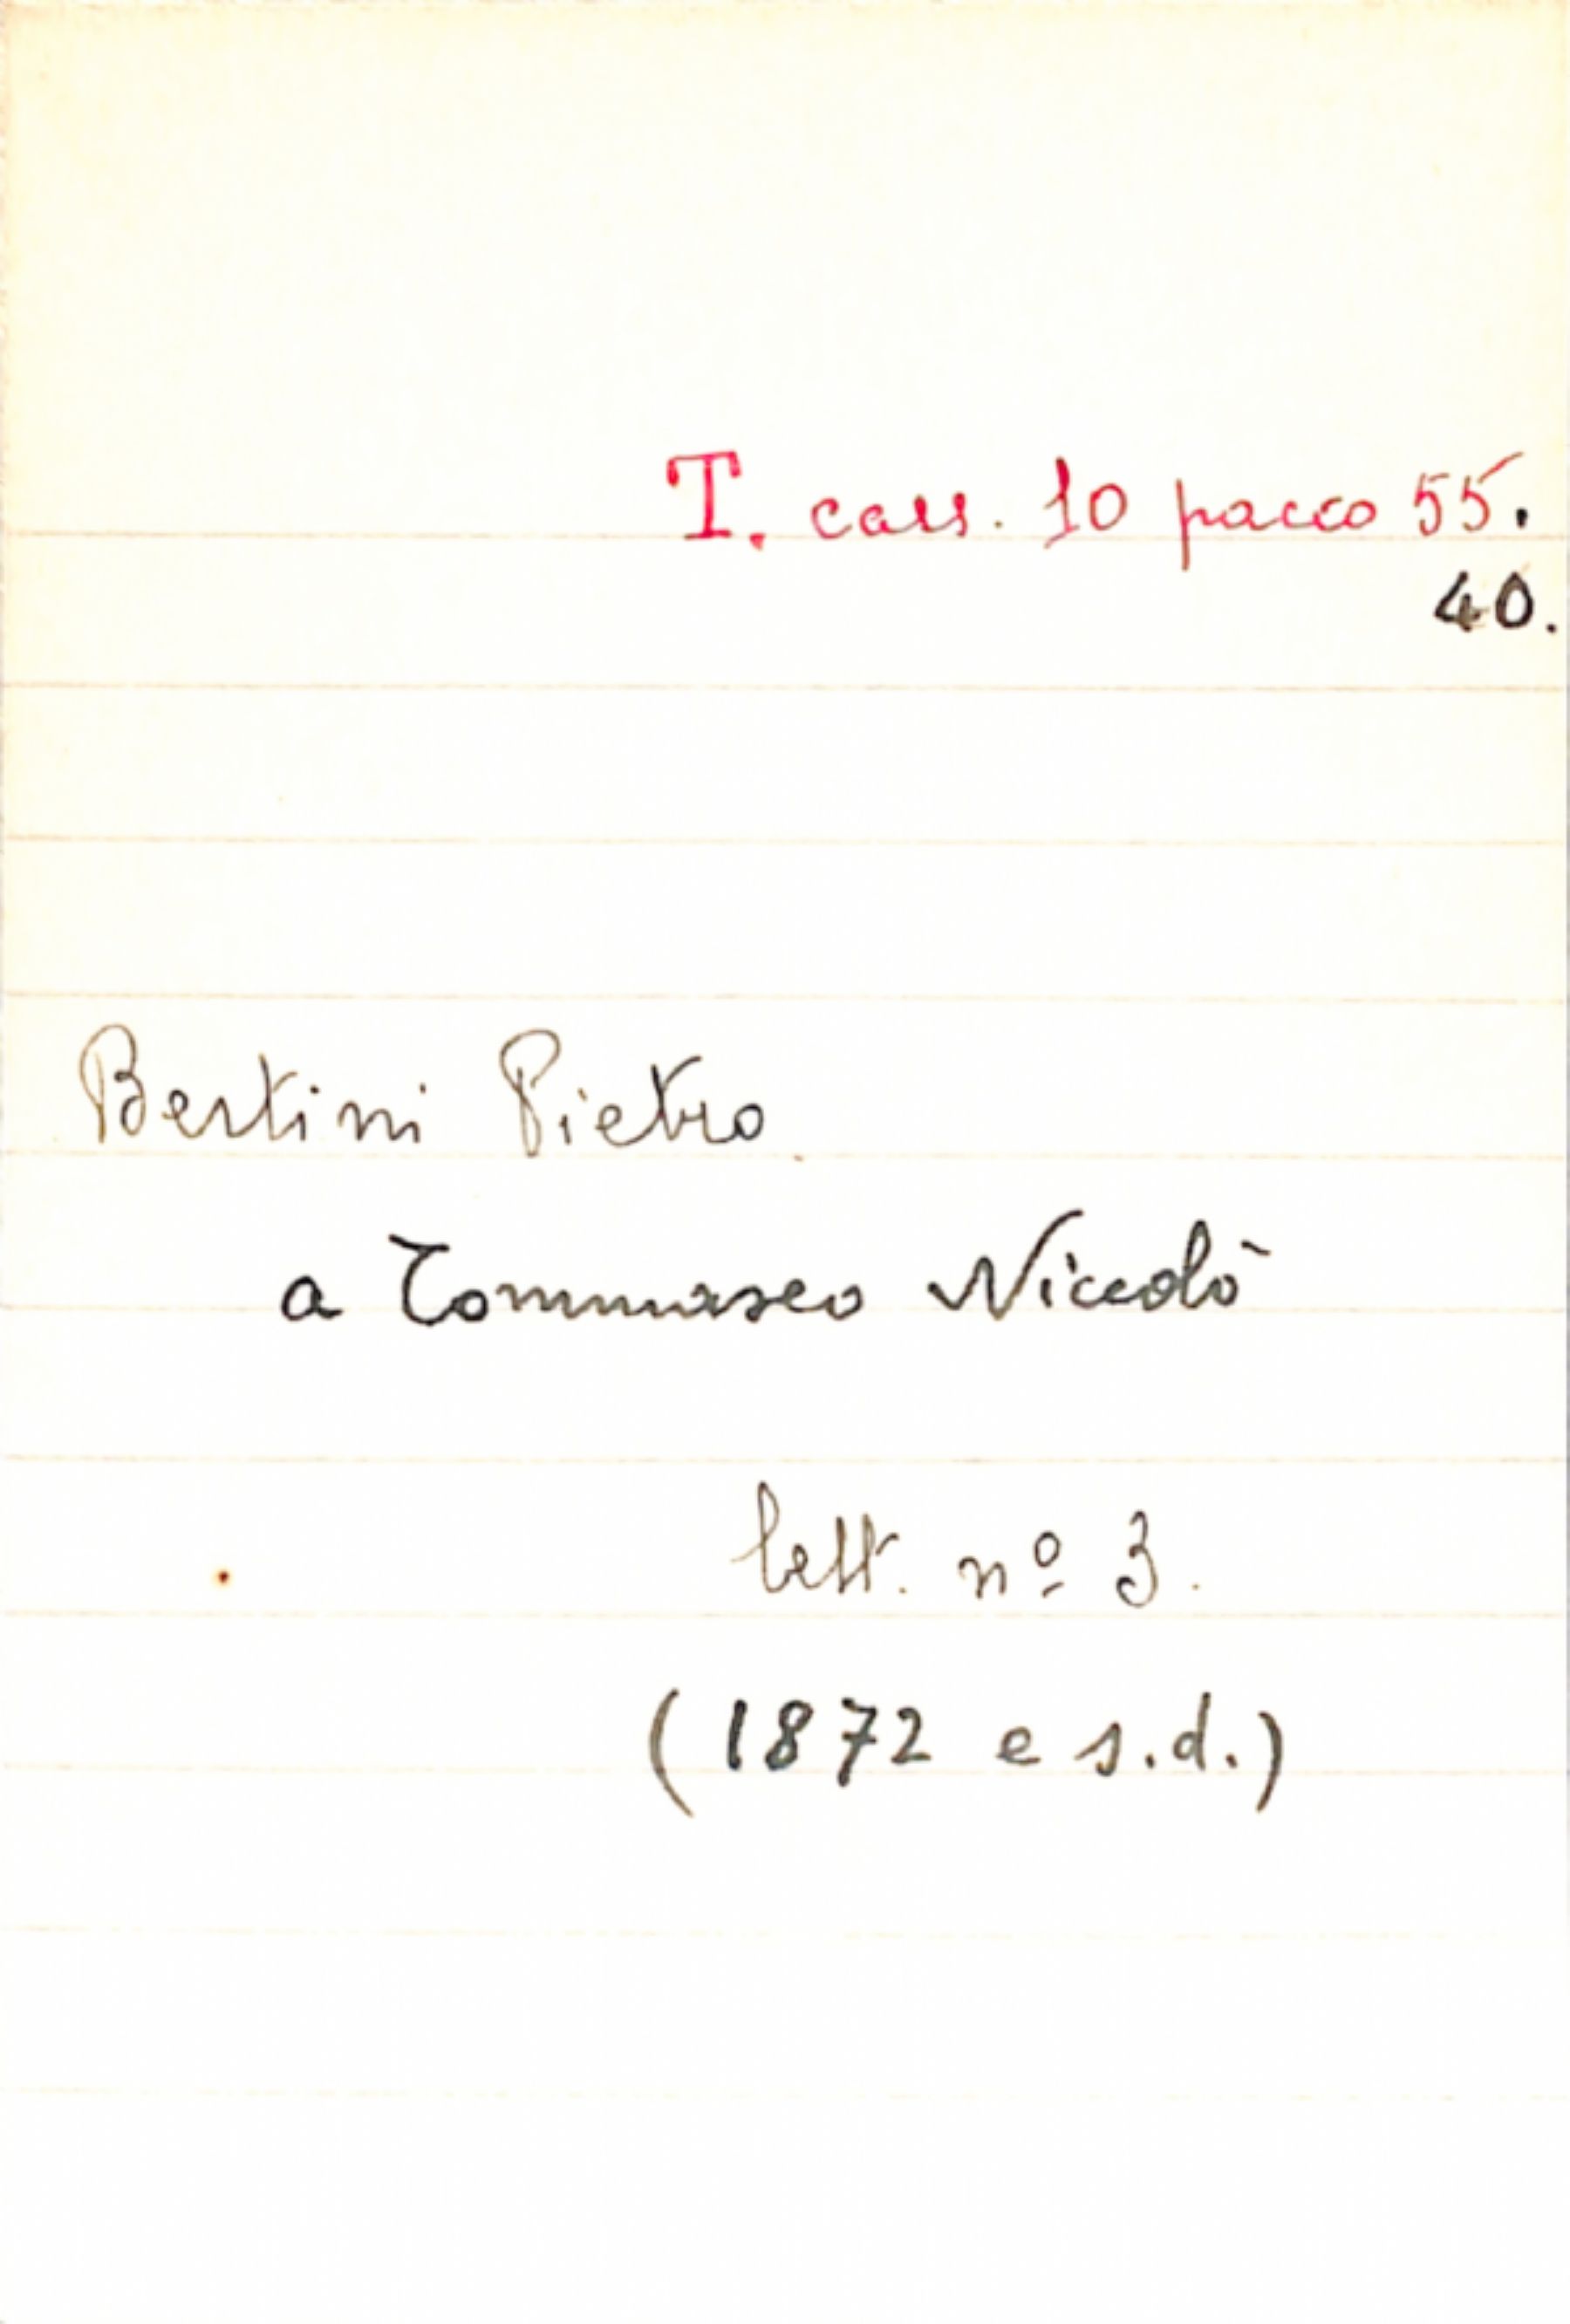 T. cass. 10 pacco 55.
40.
Bertini Pietro
a Tommaseo Niccolò
lett. nº 3.
(1872 e s.d.)